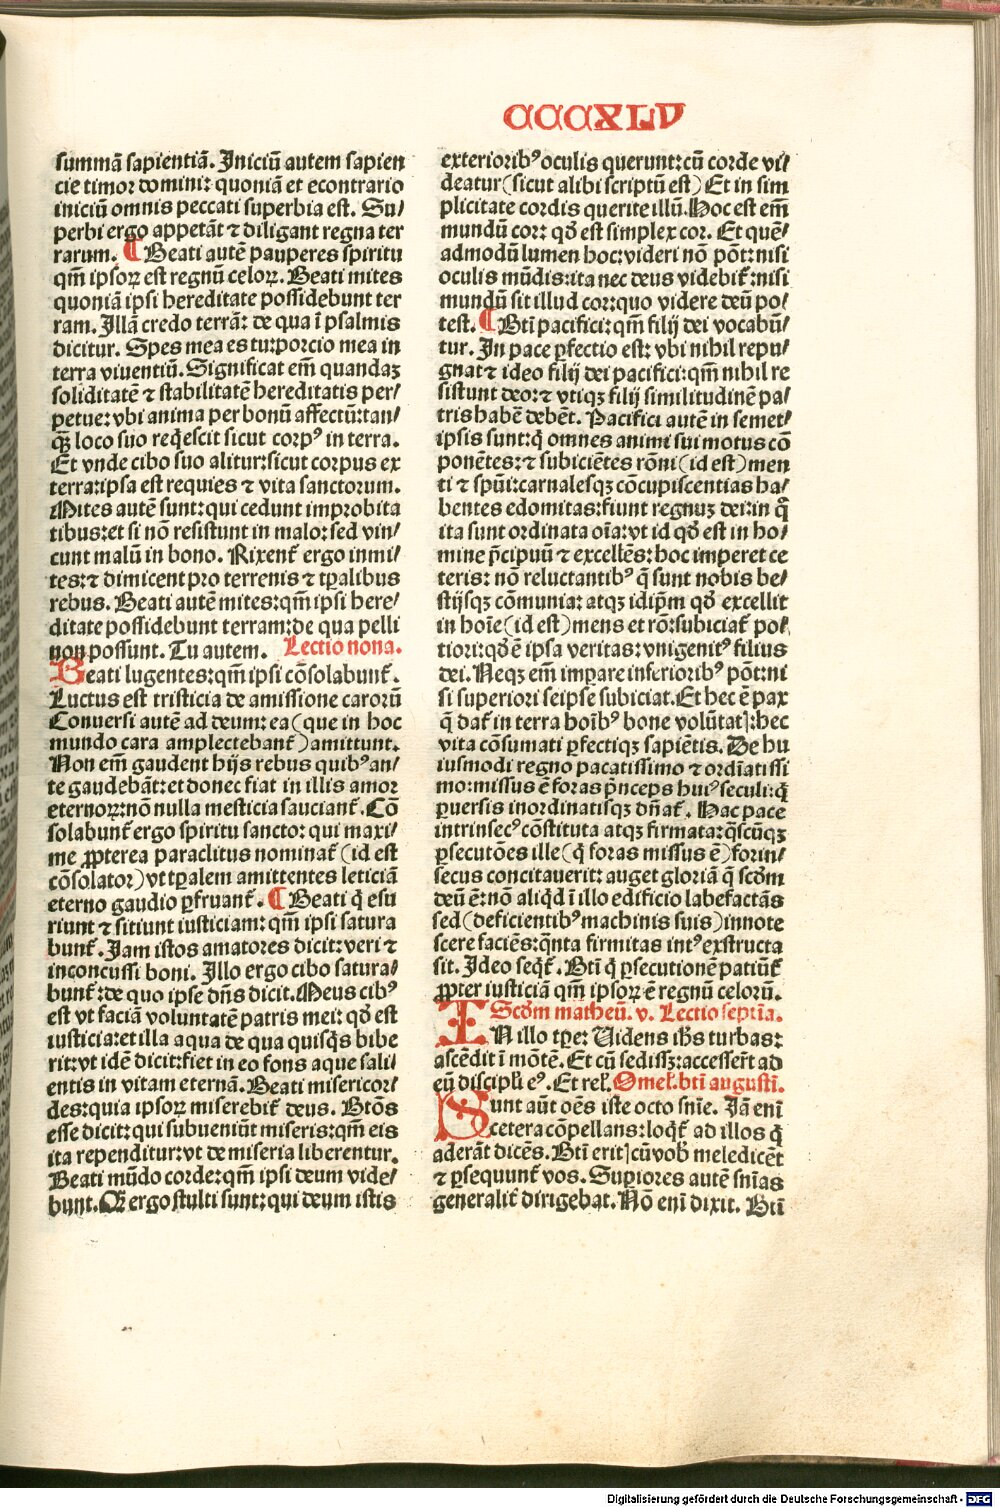 CCCXLV
summā sapientiā. Iniciū autem sapien
cie timor domini: quoniā et econtrario
iniciū omnis peccati superbia est. Su/
perbi ergo appetāt ⁊ diligant regna ter
rarum. ¶ Beati autē pauperes spiritu
qm̄ ipsoꝝ est regnū celoꝝ. Beati mites
quoniā ipsi hereditate possidebunt ter
ram. Illā credo terrā: de qua ī psalmis
dicitur. Spes mea es tu: porcio mea in
terra viuentiū. Significat em̄ quandaꝫ
soliditatē ⁊ stabilitatē hereditatis per/
petue: vbi anima per bonū affectū: tan/
qꝫ loco suo reqͥescit sicut corpꝰ in terra.
Et vnde cibo suo alitur: sicut corpus ex
terra: ipsa est requies ⁊ vita sanctorum.
Mites autē sunt: qui cedunt improbita
tibus: et si nō resistunt in malo: sed vin/
cunt malū in bono. Rixent᷑ ergo inmi/
tes: ⁊ dimicent pro terrenis ⁊ tꝑalibus
rebus. Beati autē mites: qm̄ ipsi here/
ditate possidebunt terram: de qua pelli
non possunt. Tu autem. Lectio nona.
Beati lugentes: qm̄ ipsi cōsolabunt᷑.
Luctus est tristicia de amissione carorū
Conuersi autē ad deum: ea (que in hoc
mundo cara amplectebant᷑) amittunt.
Non em̄ gaudent hijs rebus quibꝰ an/
te gaudebāt: et donec fiat in illis amor
eternoꝝ: nō nulla mesticia sauciant᷑. Cō
solabunt᷑ ergo spiritu sancto: qui maxi/
me ꝓpterea paraclitus nominat᷑ (id est
cōsolator) vt tꝑalem amittentes leticiā
eterno gaudio ꝑfruant᷑. ¶ Beati qͥ esu
riunt ⁊ sitiunt iusticiam: qm̄ ipsi satura
bunt᷑. Iam istos amatores dicit: veri ⁊
inconcussi boni. Illo ergo cibo satura/
bunt᷑: de quo ipse dn̄s dicit. Meus cibꝰ
est vt faciā voluntatē patris mei: qd̓ est
iusticia: et illa aqua de qua quisqͥs bibe
rit: vt idē dicit: fiet in eo fons aque sali/
entis in vitam eternā. Beati misericor/
des: quia ipsoꝝ miserebit᷑ deus. Btōs
esse dicit: qui subueniūt miseris: qm̄ eis
ita rependitur: vt de miseria liberentur.
Beati mūdo corde: qm̄ ipsi deum vide/
bunt. Qͣꝫ ergo stulti sunt: qui deum istis
exterioribꝰ oculis querunt: cū corde vi/
deatur (sicut alibi scriptū est) Et in sim
plicitate cordis querite illū. Hoc est em̄
mundū cor: qd̓ est simplex cor. Et quē/
admodū lumen hoc: videri nō pōt: nisi
oculis mūdis: ita nec deus videbit᷑: nisi
mundū sit illud cor: quo videre deū po/
test. ¶ Btī pacifici: qm̄ filij dei vocabū/
tur. In pace ꝑfectio est: vbi nihil repu/
gnat ⁊ ideo filij dei pacifici: qm̄ nihil re
sistunt deo: ⁊ vtiqꝫ filij similitudinē pa/
tris habē debēt. Pacifici autē in semet/
ipsis sunt: qͥ omnes animi sui motus cō
ponētes: ⁊ subiciētes rōni (id est) men
ti ⁊ spūi: carnalesqꝫ cōcupiscentias ha/
bentes edomitas: fiunt regnuꝫ dei: in qͦ
ita sunt ordinata oīa: vt id qd̓ est in ho/
mine p̄cipuū ⁊ excellēs: hoc imperet ce
teris: nō reluctantibꝰ qͥ sunt nobis be/
stijsqꝫ cōmunia: atqꝫ idip̄m qd̓ excellit
in hoīe (id est) mens et rō: subiciat᷑ po/
tiori: qd̓ ē ipsa veritas: vnigenitꝰ filius
dei. Neqꝫ em̄ imꝑare inferioribꝰ pōt: ni
si superiori seipse subiciat. Et hec ē pax
qͥ dat᷑ in terra hoībꝰ bone volūtatꝭ: hec
vita cōsumati ꝑfectiqꝫ sapiētis. De hu
iusmodi regno pacatissimo ⁊ ordīatissi
mo: missus ē foras p̄nceps huiꝰ seculi: qͥ
ꝑuersis inordinatisqꝫ dn̄at᷑. Hac pace
intrinsecꝰ cōstituta atqꝫ firmata: qͣscūqꝫ
ꝑsecutōes ille (qͥ foras missus ē) forin/
secus concitauerit: auget gloriā qͥ scd̓m
deū ē: nō aliqd̓ ī illo edificio labefactās
sed (deficientibꝰ machinis suis) innote
scere faciēs: qͣnta firmitas intꝰ exstructa
sit. Ideo seqt᷑. Btī qͥ ꝑsecutionē patiūt᷑
ꝓpter iusticiā qm̄ ipsoꝝ ē regnū celorū.
Scd̓m matheū. v. Lectio septīa.
IN illo tꝑe: Uidens ihs̄ turbas:
ascēdit ī mōtē. Et cū sedissꝫ: accesser̄t ad
eū discipl̓i eꝰ. Et rel̓. Omel̓. btī augustī.
Sunt aūt oēs iste octo sn̄ie. Iā enī
cetera cōpellans: loqt᷑ ad illos qͥ
aderāt dicēs. Btī eritꝭ cū vob̓ meledicēt
⁊ ꝑsequunt᷑ vos. Suꝑiores autē sn̄ias
generalit᷑ dirigebat. Nō enī dixit. Btī
Digitalisierung gefördert durch die Deutsche Forschungsgemeinschaft - DFG